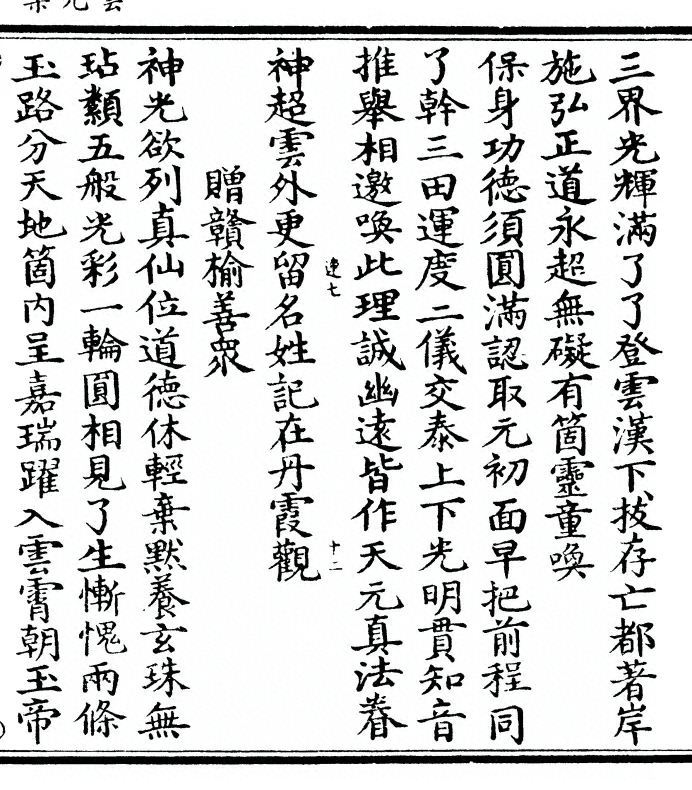 三界光輝滿了了登雲漢下拔存亡都著岸
施弘正道永超無礙有箇靈童喚
保身功徳須圓滿認取元初面早把前程同
了幹三田運度二儀交泰上下光明貫知音
推舉相邀喚此理誠幽遠皆作天元真法眷
連七
十二
神超雲外更留名姓記在丹霞觀
贈贛榆善衆
神光欲列真仙位道德休輕棄默養玄珠無
玷纇五般光彩一輪圓相見了生慚愧兩條
玉路分天地箇内呈嘉瑞躍入雲霄朝玉帝